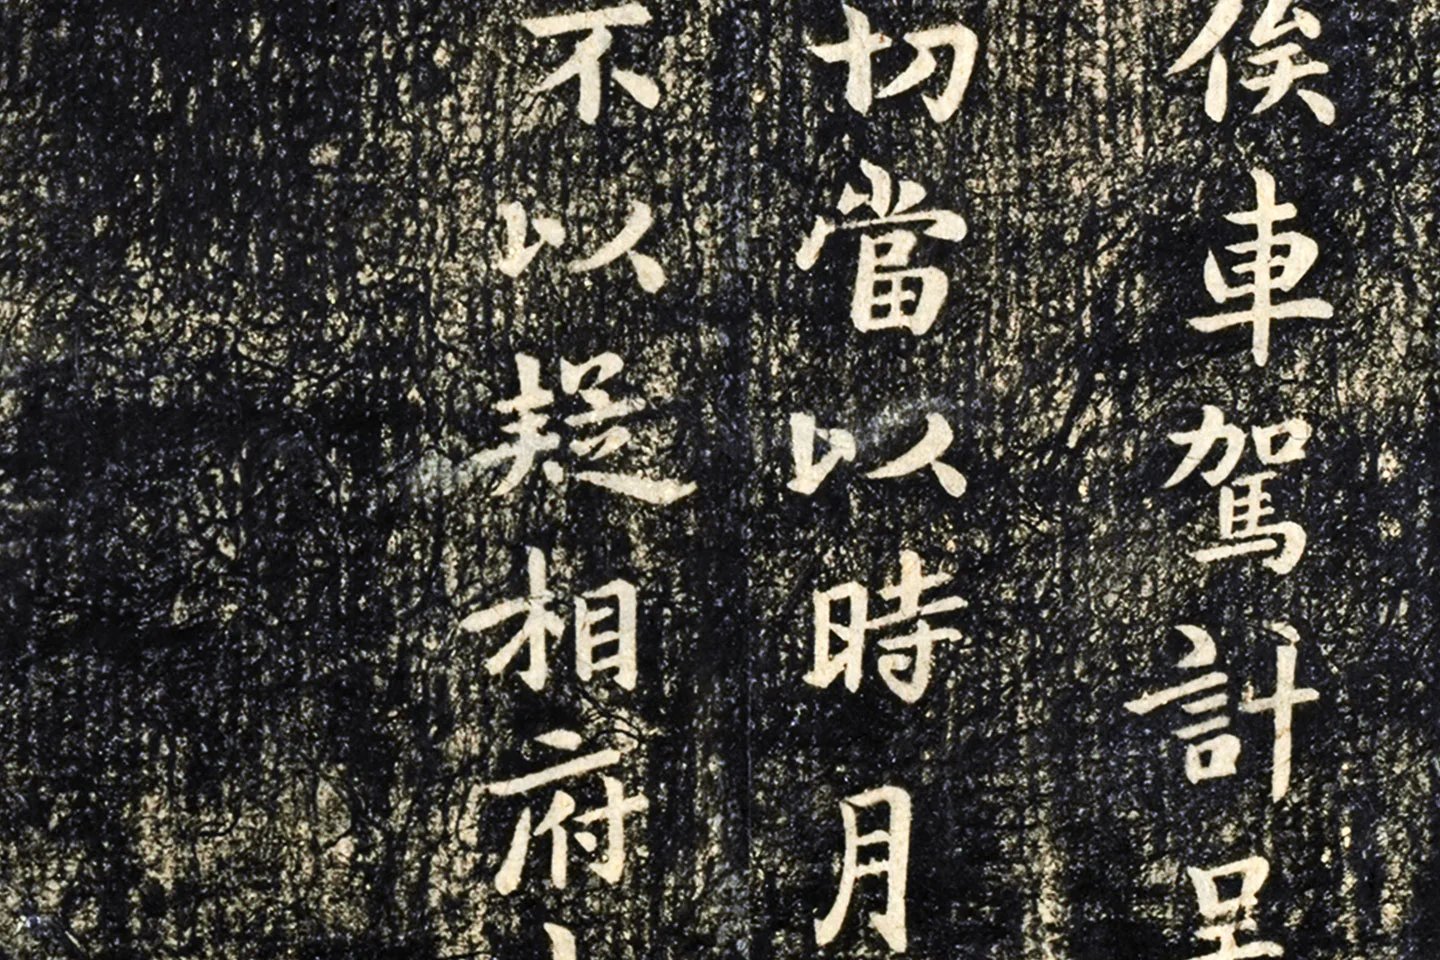 俟車駕計呈
切當以時月
不以疑相府